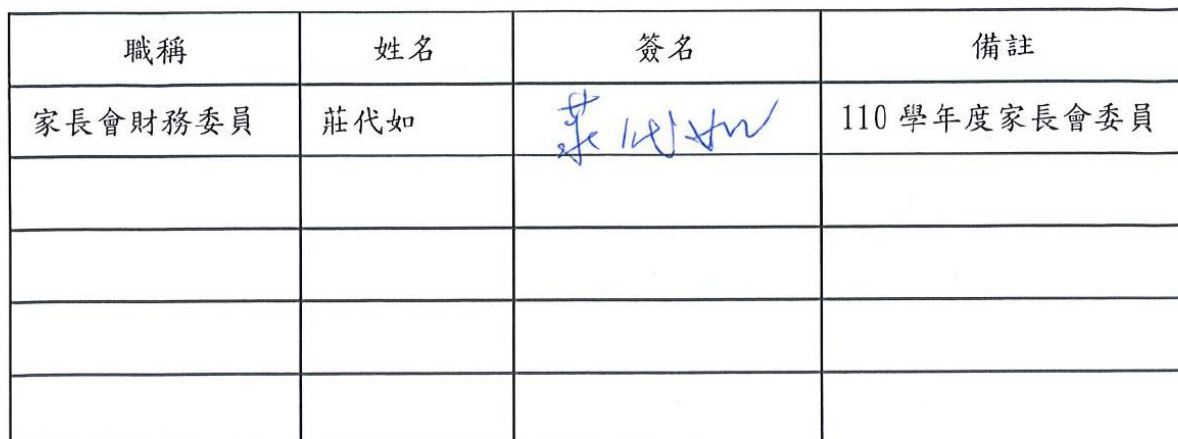 職稱 姓名 簽名 備註
家長會財務委員 莊代如 莊代如 110 學年度家長會委員